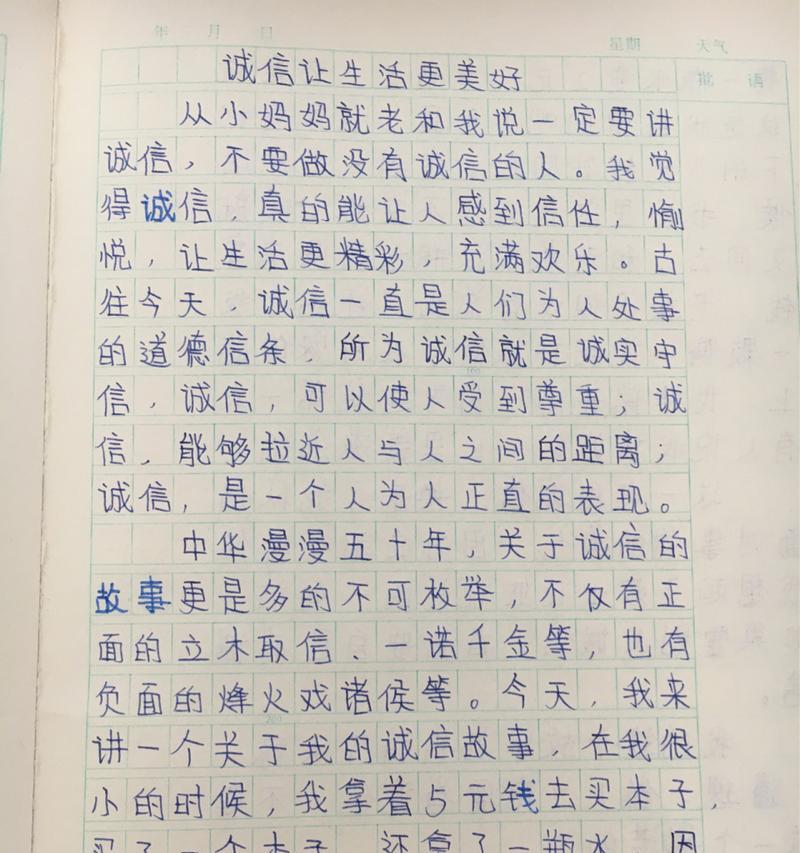 年 月 日 星期 天气
诚信让生活更美好
批 语
从小妈妈就老和我说一定要讲
诚信，不要做没有诚信的人。我觉
得诚信，真的能让人感到信任，愉
悦，让生活更精彩，充满欢乐。古
往今天，诚信一直是人们为人处事
的道德信条，所为诚信就是诚实守
信，诚信，可以使人受到尊重；诚
信，能够拉近人与人之间的距离；
诚信，是一个人为人正直的表现。
中华漫漫五十年，关于诚信的
故事更是多的不可枚举，不仅有正
面的立木取信、一诺千金等，也有
负面的烽火戏诸侯等。今天，我来
讲一个关于我的诚信故事，在我很
小的时候，我拿着5元钱去买本子，
买了一个本子，还拿了一瓶水，因